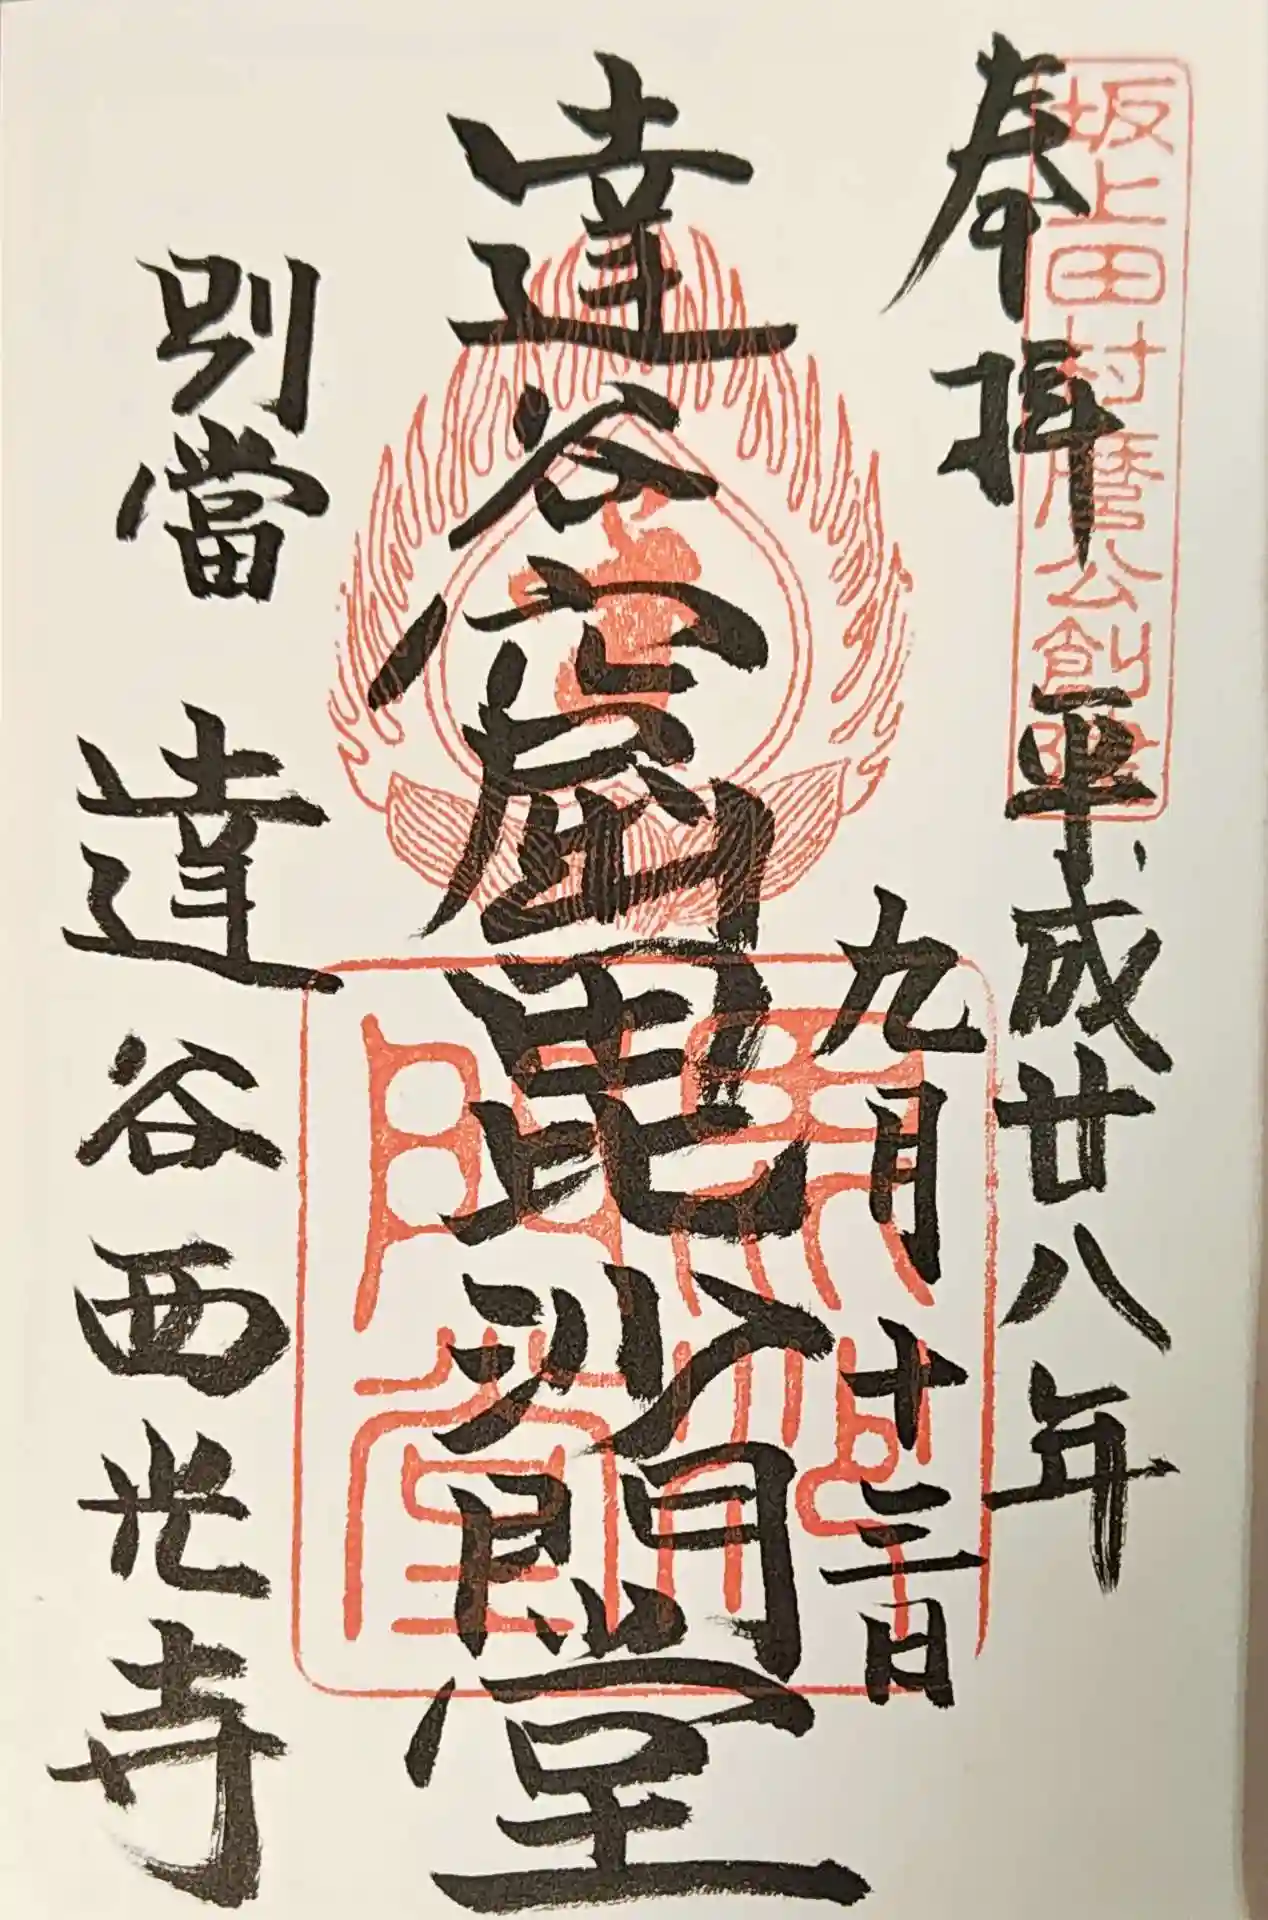 奉拝
坂上田村麿公創建
平成廿八年
九月十三日
達谷窟毘沙門堂
毘沙門堂
別當
達谷西光寺